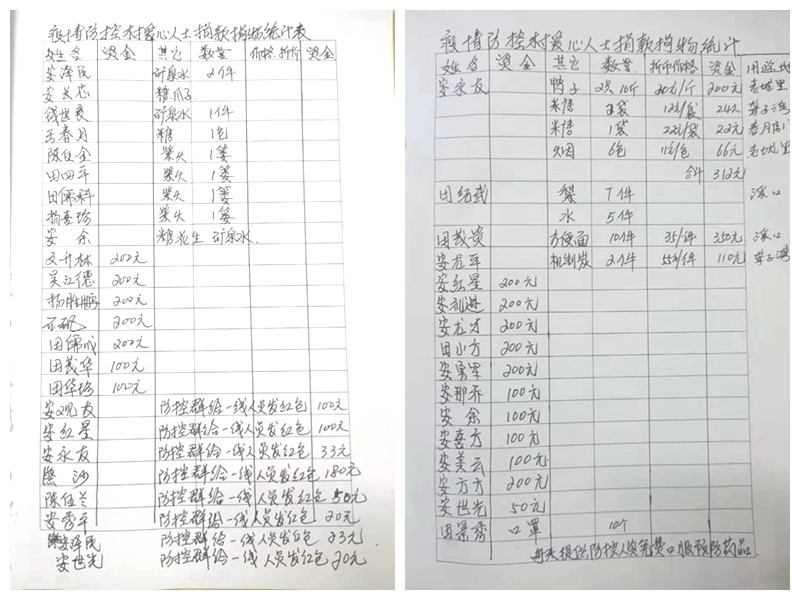 疫情防控木授心人士捐款捐物统计表
姓名 资金 其它 数量 价格折价 资金
安泽民 矿泉水 2件
安关志 糖瓜子
钱世爱 矿泉水 1件
王春月 糖 1包
陈仕金 柴火 1篓
田四平 柴火 1篓
田儒科 柴火 1篓
杨喜珍 柴火 1篓
安余 糖花生 矿泉水
文升林 200元
吴江德 200元
杨胜鹏 200元
200元
田儒成 200元
田茂华 100元
田华珍 100元
安观友 防控群给一线人员发红包 100元
安红星 防控群给一线人员发红包 100元
安永友 防控群给一线人员发红包 33元
熊沙 防控群给一线人员发红包 180元
陈仕兰 防控群给一线人员发红包 50元
安雪平 防控群给一线人员发红包 20元
安泽民 防控群给一线人员发红包 23元
安世光 防控群给一线人员发红包 20元
疫情防控木授心人士捐款捐物统计
姓名 资金 其它 数量 折币价格 资金 用途地
安永友 鸭子 2次10斤 20元/斤 200元 老城里
米语 2袋 12元/袋 24元
米语 1袋 22元/袋 22元 春月店
烟 6包 11元/包 66元 老城里
合计 312元
田绍武 梨 7件 溪口
水 5件
田茂贵 方便面 10件 35/件 350元 溪口
安龙平 机制炭 2件 55元/件 110元
安红星 200元
安礼进 200元
安龙才 200元
田小方 200元
安勇军 200元
安那乔 100元
安余 100元
安喜方 100元
安美云 100元
安方方 200元
安世光 50元
田景秀 口罩 10个
每天提供防控人员免费口服预防药品